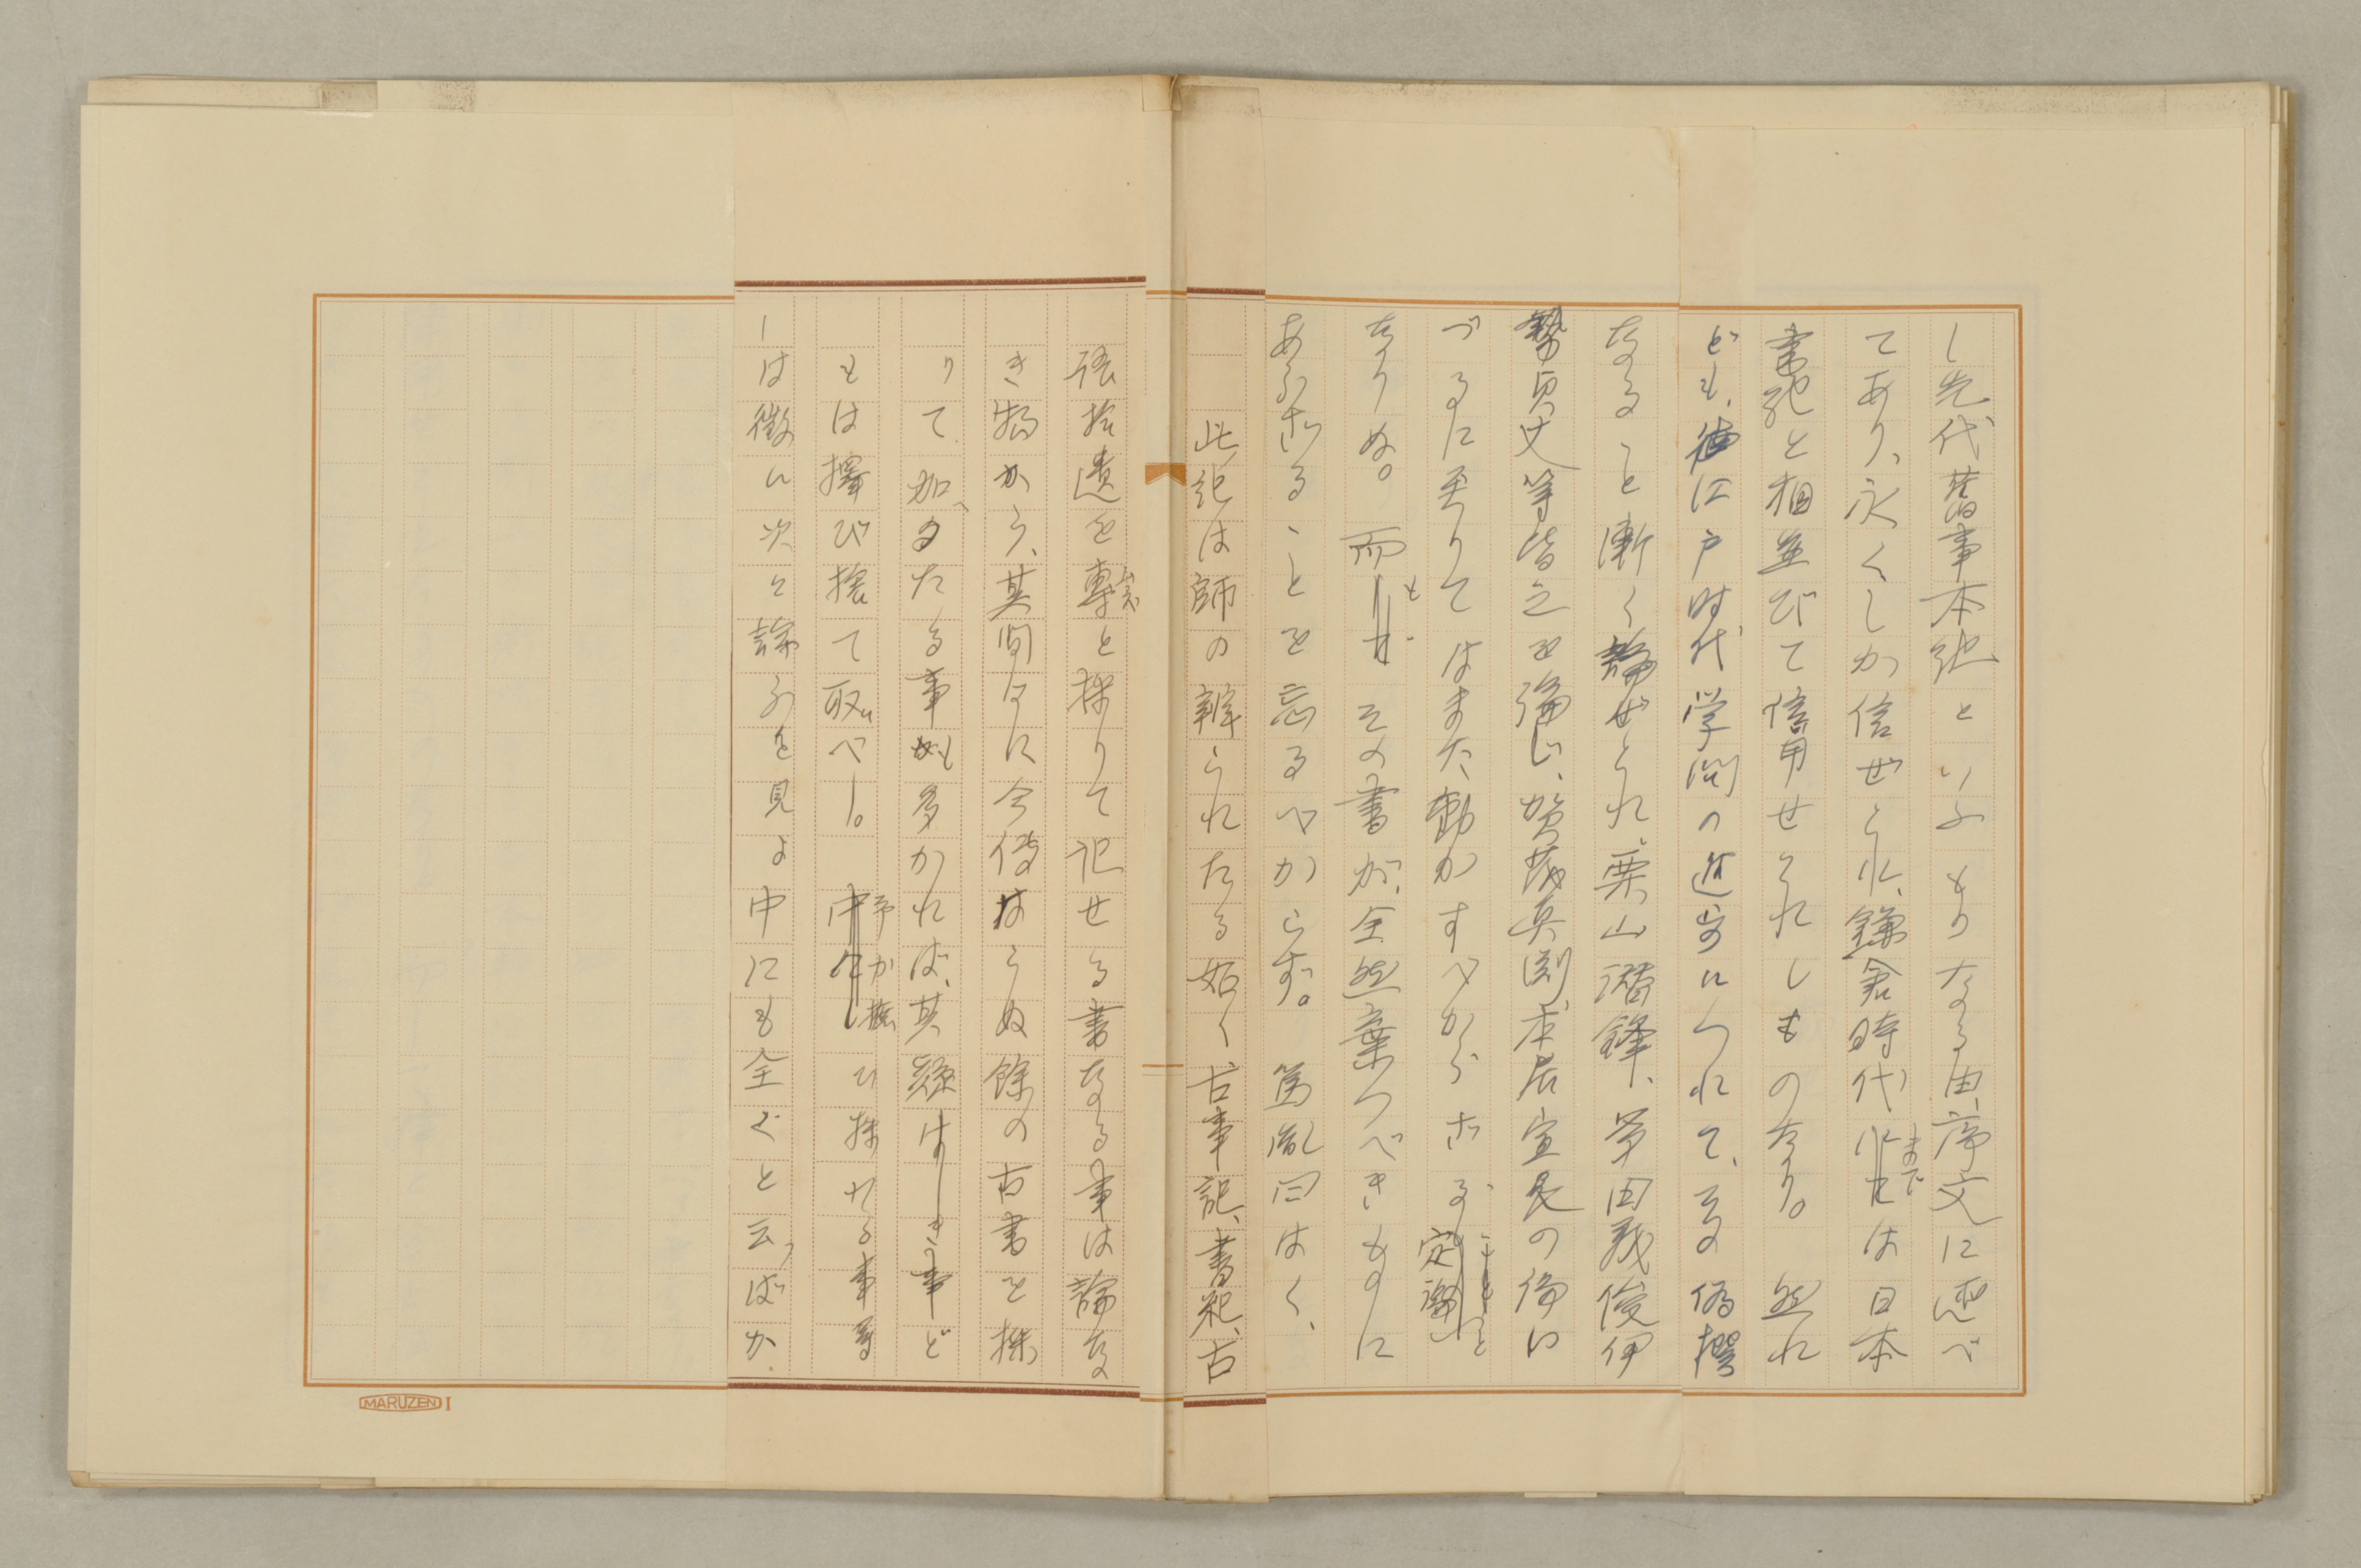 し先代旧事本紀といふものなる由、序文に述べ
てあり、永くしか信ぜられ、鎌倉時代までは日本
書紀と相並びて信用せられしものなり。然れ
ども、江戸時代学問の進歩につれて、その偽撰
なること漸く論ぜられ、栗山潜鋒、多田義俊、伊
勢貞丈等皆之を論じ、賀茂真淵、本居宣長の論い
づるに至りてはまた動かすべからざる定論と
なりぬ。而もその書が、全然棄つべきものに
あらざることを忘るべからず。篤胤曰はく、
此紀は師の辨られたる如く、古事記、書紀、古
語拾遺を専と採りて記せる書なる事は論な
き物から、其間々に今伝はらぬ餘の古書を採
りて加へたる事も多かれば、其疑はしき事ど
もは擇び捨て取べし。予が拠ひ採れる事等
は徴に次々論ふを見よ中にも全ぐと云つばか
MARUZEN I